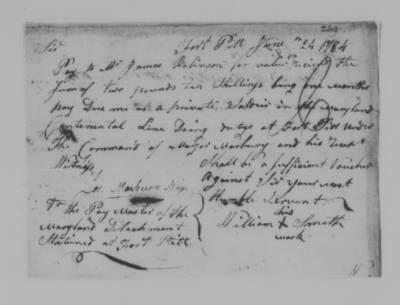 Sir Fort Pitt June 24 1784
Pay to Mr James Robinson for value received the
sum of two pounds ten Shillings being one months
pay Due me as a private Soldier in the Maryland
Continental Line Doing duty at Fort Pitt under
The Command of Major Marbury and his
Witness Shall be a sufficient Voucher
Against Sir Your most
Marbury Humble
To the Pay Master of the his
Maryland Detachment William X Smith
Stationed at Fort Pitt mark